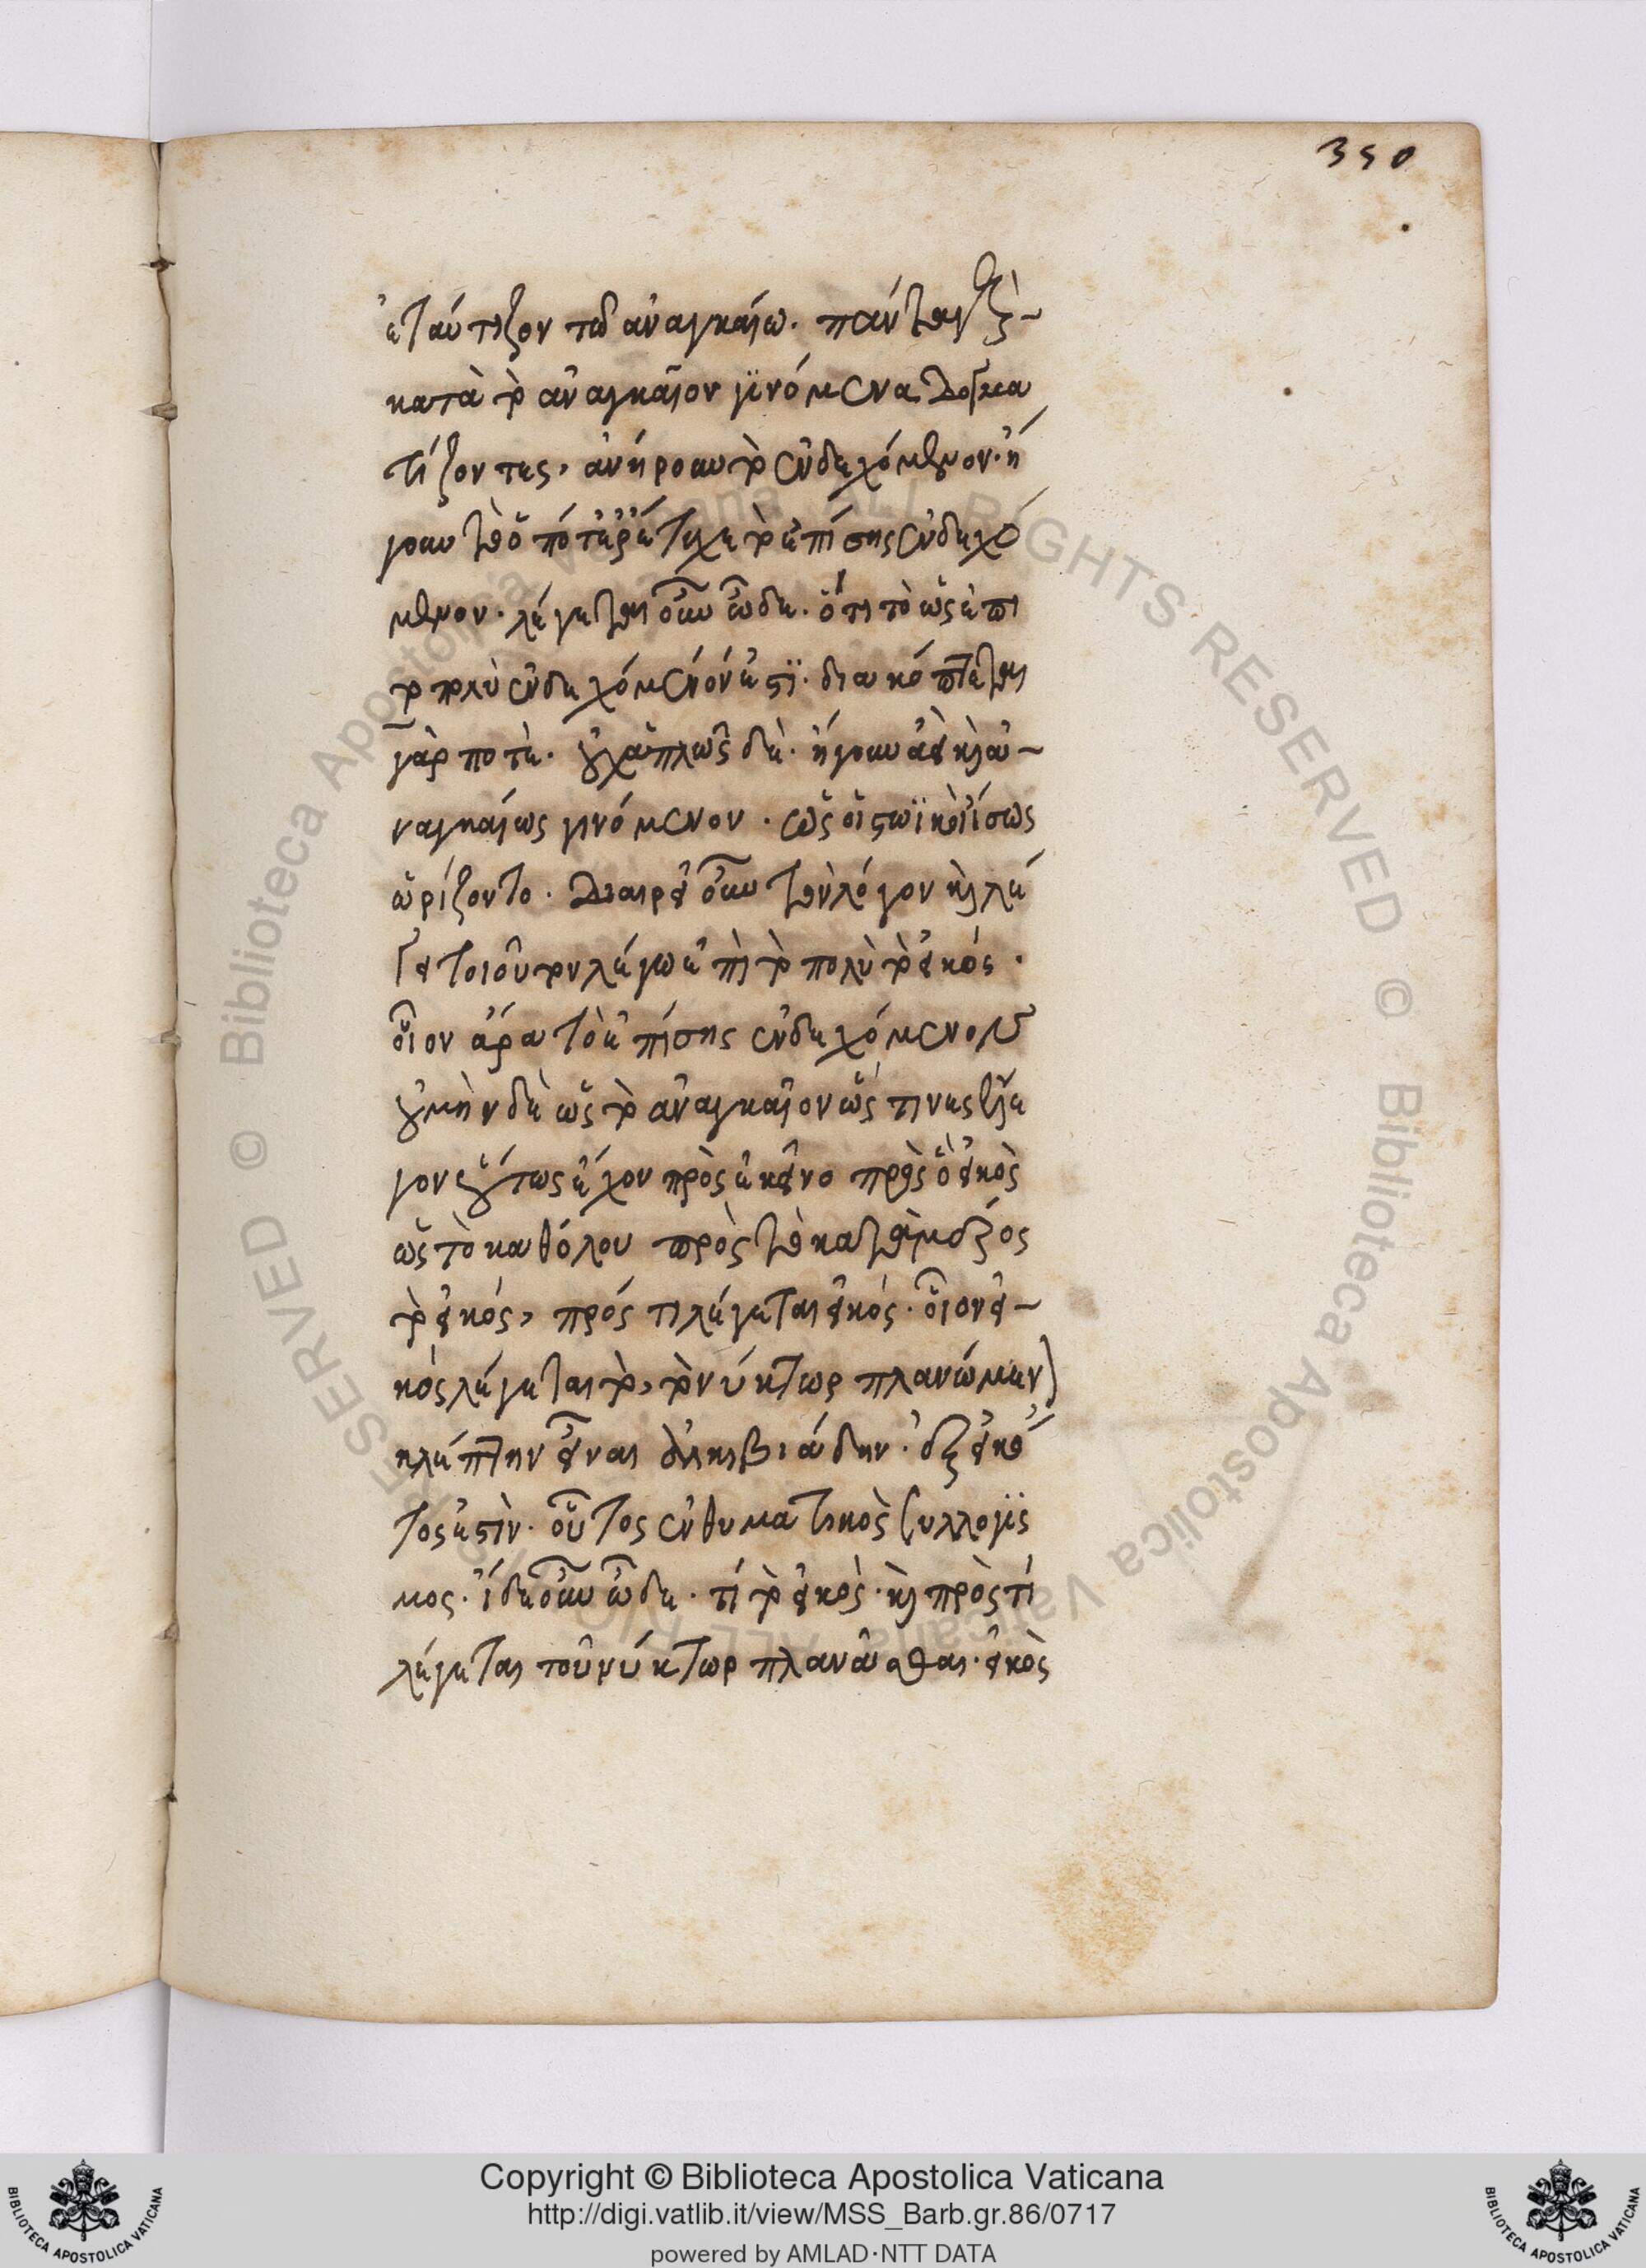 350
ἐταύτιζον τῶ ἀναγκαίω. πάντα γὰρ
κατὰ τὸ ἀναγκαῖον γϊνόμενα δογμα
τίζοντες, ἀνήρουν τὸ ἐνδεχόμενον. ἤ
γουν τὸ ὁπότερ' ἔτυχε τὸ ἐπίσης ἐνδεχό
μενον. λέγεται οὖν ὧδε. ὅτι τὸ ὡς ἐπι
τὸ πολὺ ἐνδεχόμενόν ἐστϊ. διακόπτεται
γὰρ ποτὲ. οὐχ ἁπλῶς δὲ. ἤγουν ἀεὶ καὶ ἀ
ναγκαίως γινόμενον. ὡς οἱ στωϊκοὶ ἴσως
ὡρίζοντο. διαιρεῖ οὖν τὸν λόγον καὶ λέ
γει τοιοῦτον λέγω ἐπὶ τὸ πολὺ τὸ εἰκός.
οἷον ἄρα τὸ ἐπίσης ἐνδεχόμενον
οὐ μὴν δὲ ὡς τὸ ἀναγκαῖον ὥς τινες ἔλε
γον οὕτως ἔχον πρὸς ἐκεῖνο πρὸς ὃ εἰκὸς
ὡς τὸ καθόλου πρὸς τὸ κατὰ μέρος
τὸ εἰκός, πρός τι λέγεται εἰκός. οἷον εἰ
κὸς λέγεται τὸ, τὸν νύκτωρ πλανώμενον
κλέπτην εἶναι ἀλκιβιάδην. ἐξ εἰκό
τος ἐστὶν. οὗτος ἐνθυματικὸς συλλογϊς
μος. ἴδε οὖν ὧδε. τί τὸ εἰκὸς. καὶ πρὸς τί
λέγεται τοῦ νύκτωρ πλανᾶσθαι. εἰκὸς
Copyright © Biblioteca Apostolica Vaticana
http://digi.vatlib.it/view/MSS_Barb.gr.86/0717
powered by AMLAD·NTT DATA
BIBLIOTECA APOSTOLICA VATICANA
BIBLIOTECA APOSTOLICA VATICANA
© Biblioteca Apostolica Vaticana ALL RIGHTS RESERVED © Biblioteca Apostolica Vaticana ALL RIGHTS RESERVED